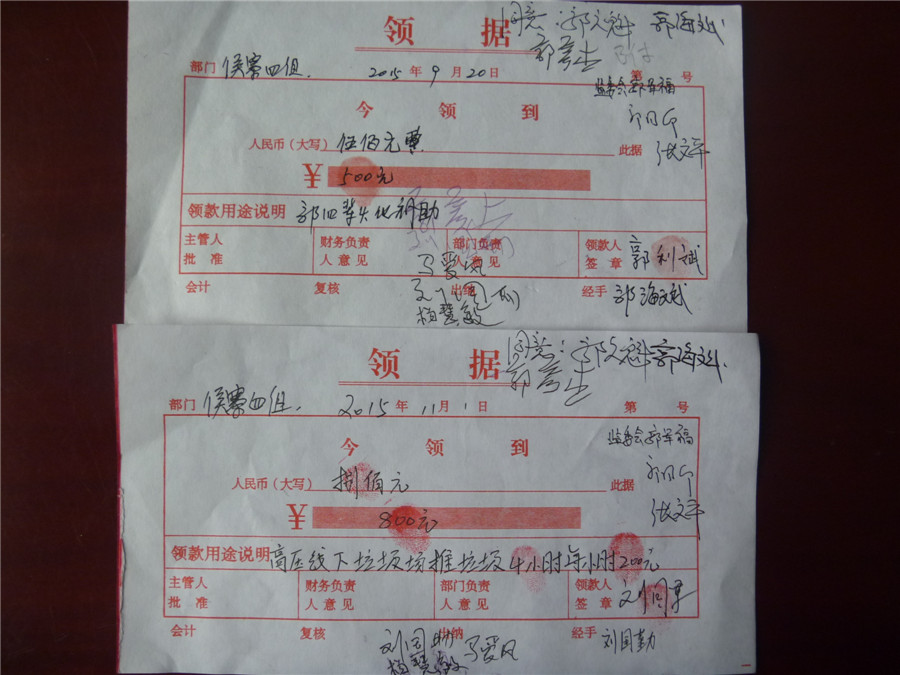 领 据
同意:郭文科 郭海斌
郭彦生
部门 侯寨四组. 2015年9月20日 第 号
监委会郭军福
今 领 到
人民币(大写) 伍佰元 此据 张文平
¥ 500元
领款用途说明 郭四 火化补助
主管人 批 准 财务负责人意见 部门负责人意见 领款人签 章 郭利斌
马爱凤
会计 复核 出纳 经手 郭海斌
刘国
柏慧敏
领 据
同意:郭文科 郭海斌.
郭彦生
部门 侯寨四组. 2015年11月1日 第 号
监委会郭军福
今 领 到
人民币(大写) 捌佰元 此据 张文平
¥ 800元
领款用途说明 高压线下垃圾场推垃圾4小时每小时200元
主管人 批 准 财务负责人意见 部门负责人意见 领款人签 章 刘国
会计 复核 出纳 经手 刘国勤
刘国 马爱凤
柏慧敏